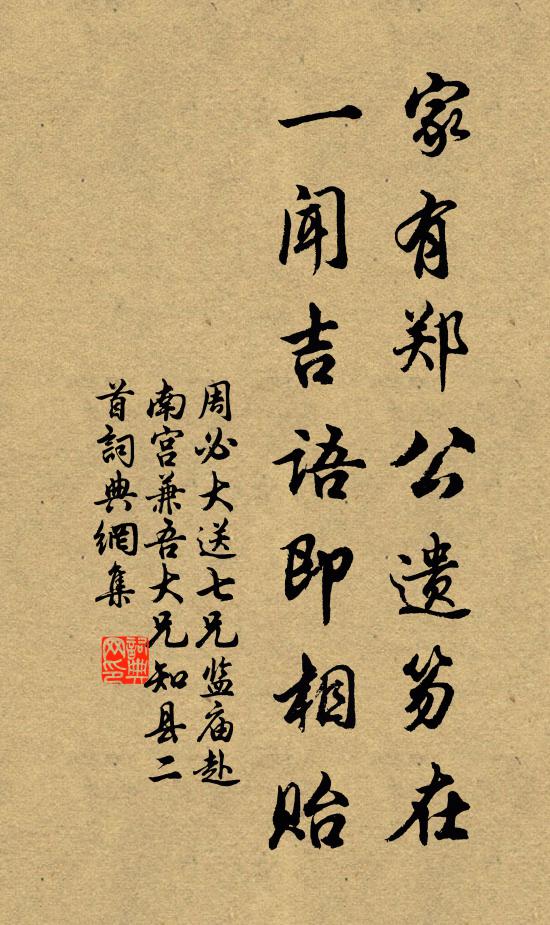 家有郑公遗笏在
一闻吉语即相贻
周必大送七兄监庙赴
南宫兼吾大兄知县二
首詞典網集
詞典
网印